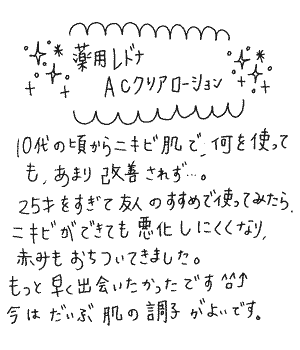 薬用レドナ
ACクリアローション
10代の頃からニキビ肌で、何を使って
も、あまり改善されず…。
25才をすぎて友人のすすめで使ってみたら、
ニキビができても悪化しにくくなり、
赤みもおちついてきました。
もっと早く出会いたかったです^^↑
今はだいぶ肌の調子がよいです。